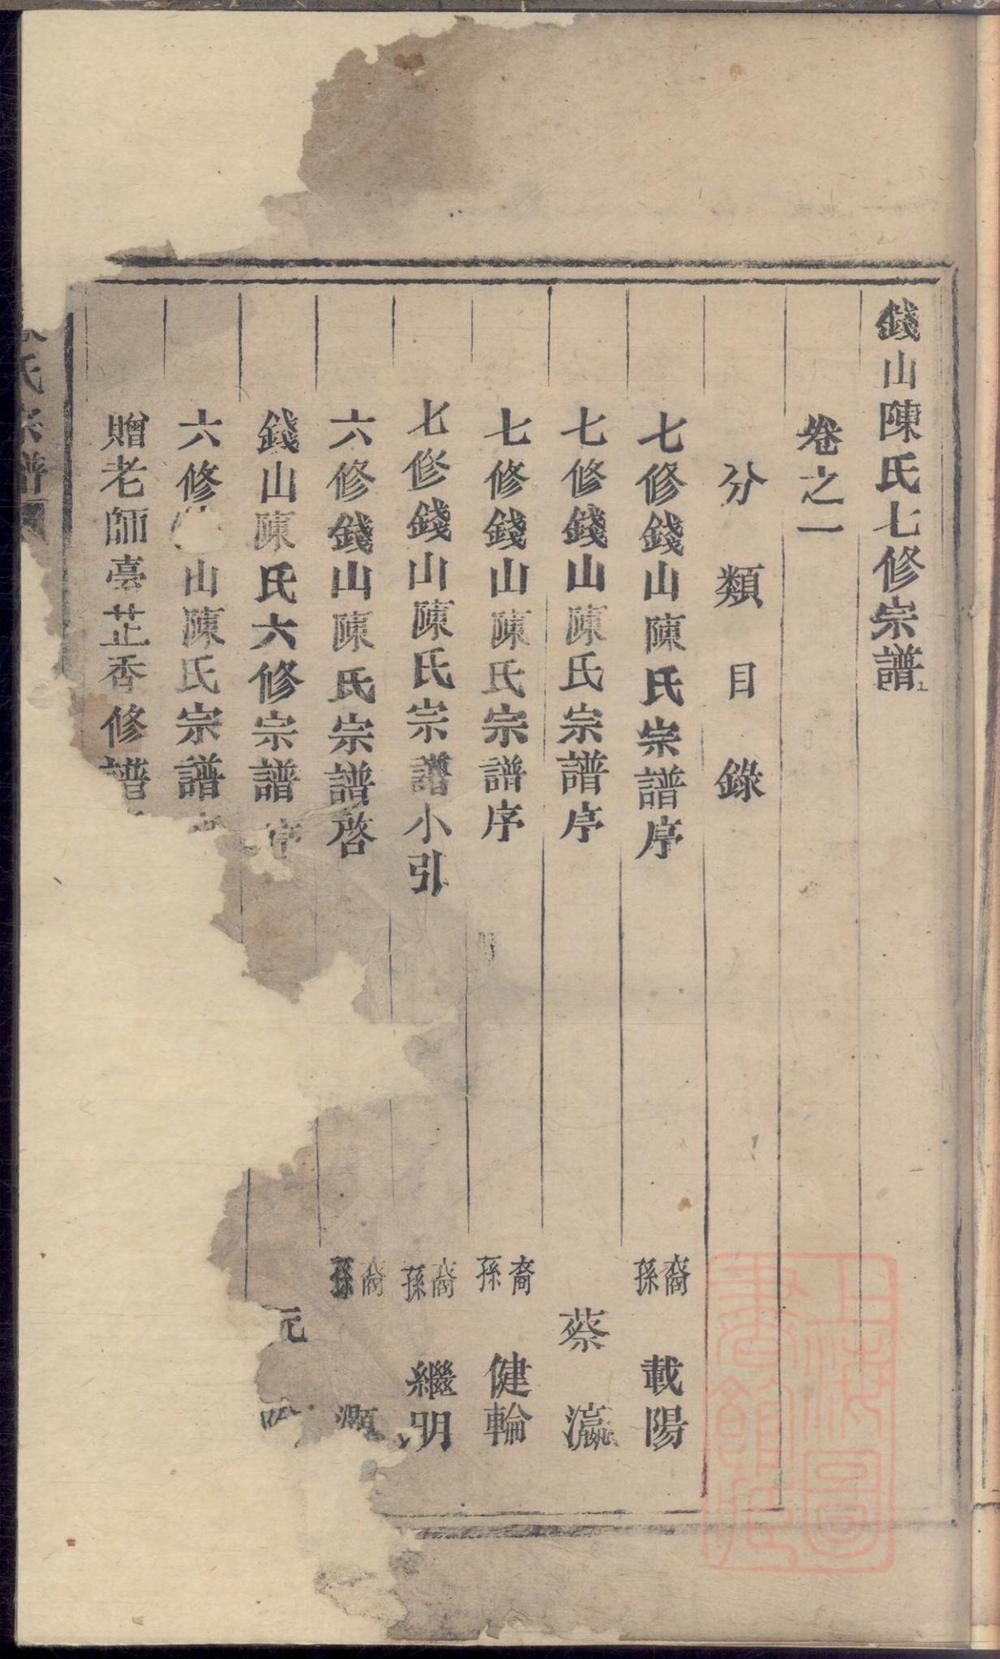 錢山陳氏七修宗譜
卷之一
分類目錄
七修錢山陳氏宗譜序 裔孫 載陽
七修錢山陳氏宗譜序 蔡瀛
七修錢山陳氏宗譜序 裔孫 健輪
七修錢山陳氏宗譜小引 裔孫 繼明
六修錢山陳氏宗譜啓 裔孫 灝
錢山陳氏六修宗譜序 元
六修山陳氏宗譜
贈老師臺芷香修譜
氏宗譜
上海圖書館藏